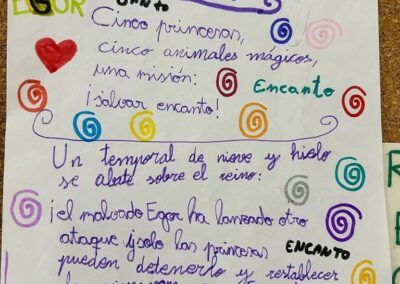 EGOR
Cinco princesas,
cinco animales mágicos,
una misión:
¡salvar encanto!
Encanto
Un temporal de nieve y hielo
se abate sobre el reino:
¡el malvado Egor ha lanzado otro
ataque y solo las princesas
ENCANTO
pueden detenerlo y restablecer